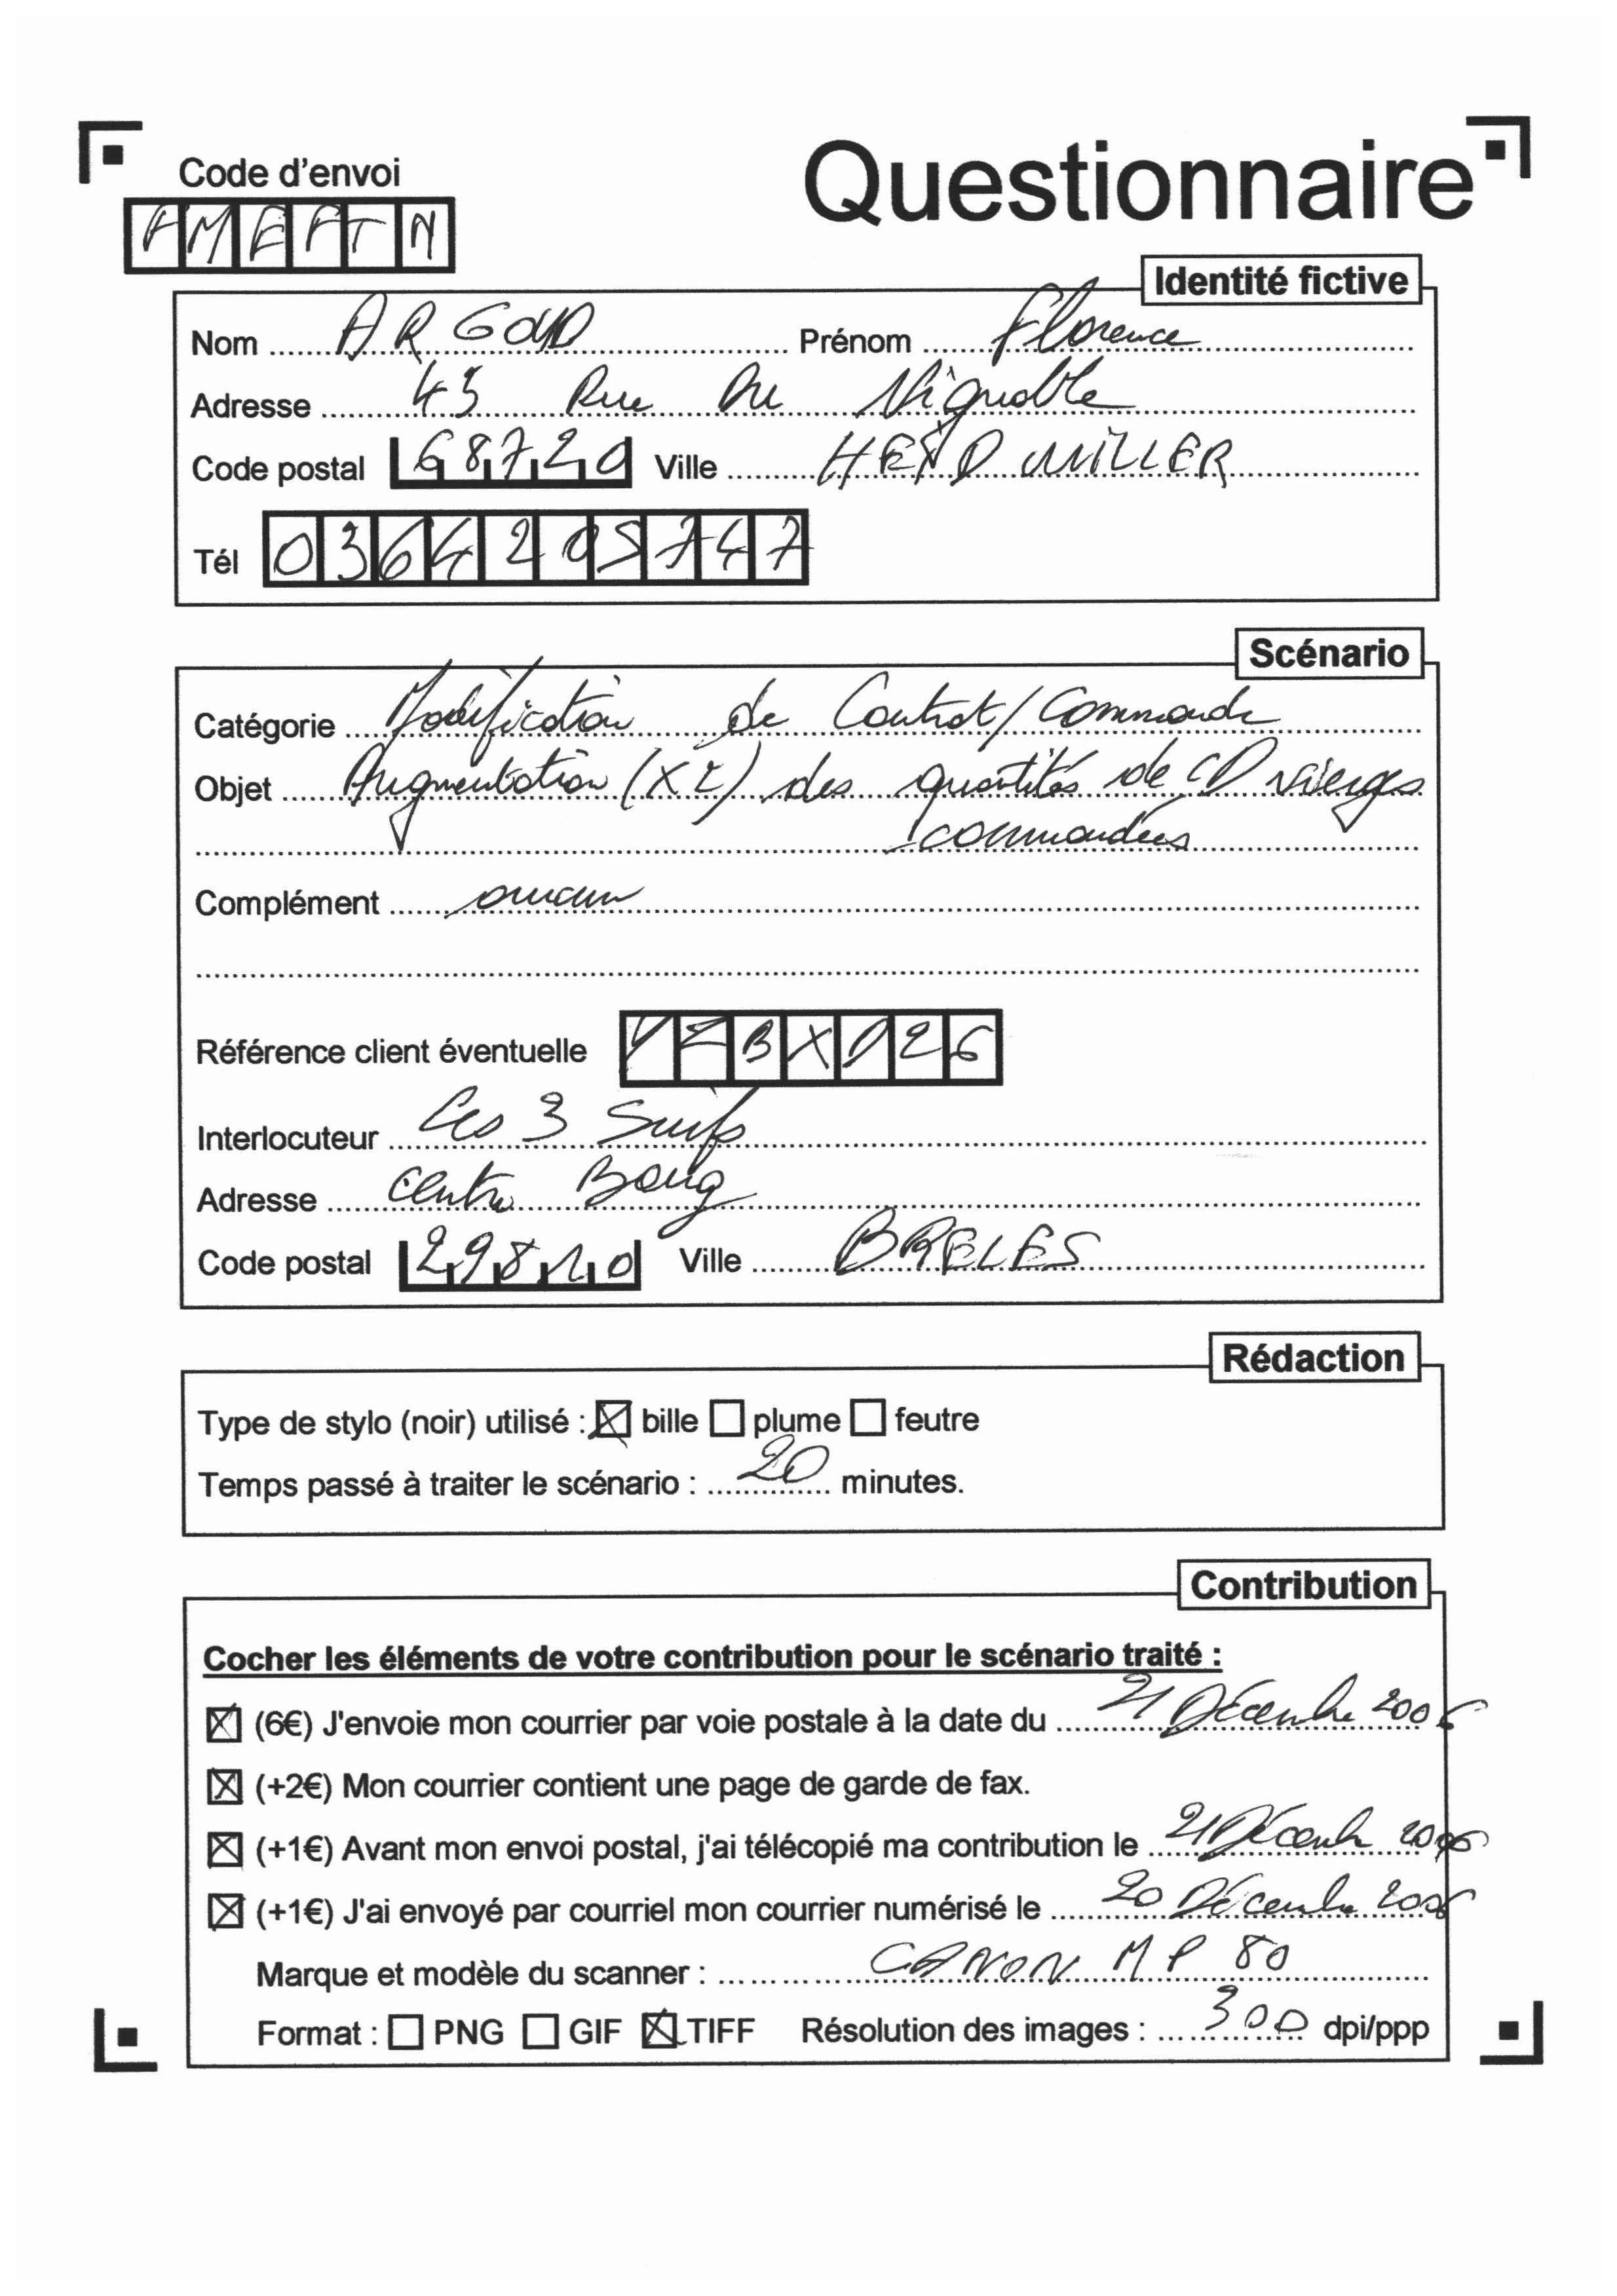 Code d'envoi
Questionnaire
AMEFTN
Identité fictive
Nom ARGOUD Prénom Florence
Adresse 45 Rue Du Vignoble
Code postal 68720 Ville
Tél 0364205747
Scénario
Catégorie Modification de Contrat/Commande
Objet Augmentation (X2) des quantités de CD vierges
commandées
Complément aucun
Référence client éventuelle YZBX026
Interlocuteur Les 3 Surfs
Adresse Centre Bourg
Code postal 29810 Ville BRELES
Rédaction
Type de stylo (noir) utilisé : bille plume feutre
Temps passé à traiter le scénario : 20 minutes.
Contribution
Cocher les éléments de votre contribution pour le scénario traité :
(6€) J'envoie mon courrier par voie postale à la date du 21 Décembre 2006
(+2€) Mon courrier contient une page de garde de fax.
(+1€) Avant mon envoi postal, j'ai télécopié ma contribution le 21 Décembre 2006
(+1€) J'ai envoyé par courriel mon courrier numérisé le 20 Décembre 2006
Marque et modèle du scanner : CANON MP 80
Format : PNG GIF TIFF Résolution des images : 300 dpi/ppp